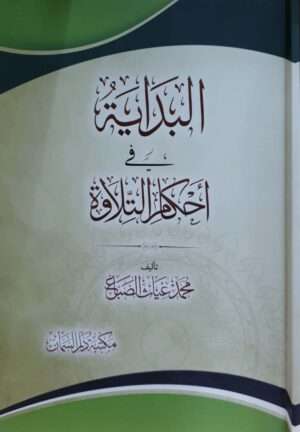 البَدَايَةُ
في
أحْكَامِ التِّلَاوَة
تأليف
محمّد غياث الصباغ
مكتبة دار السمان